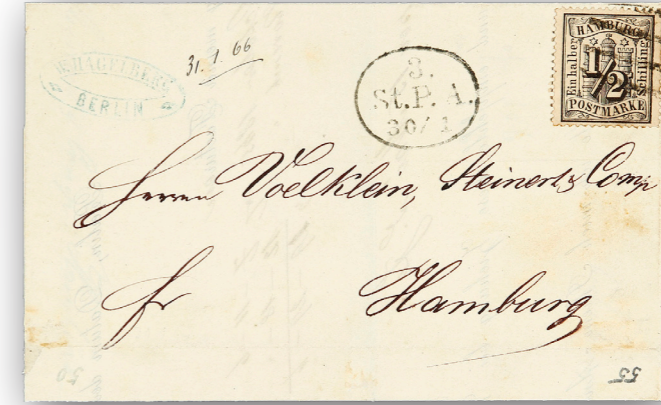 HAGELBERG
BERLIN
31. 1. 66
3.
St. P. A.
30/1
HAMBURG
Ein halber
1/2
Schilling
POSTMARKE
Herren Voelklein, Steinert & Comp
fr
Hamburg
50
55